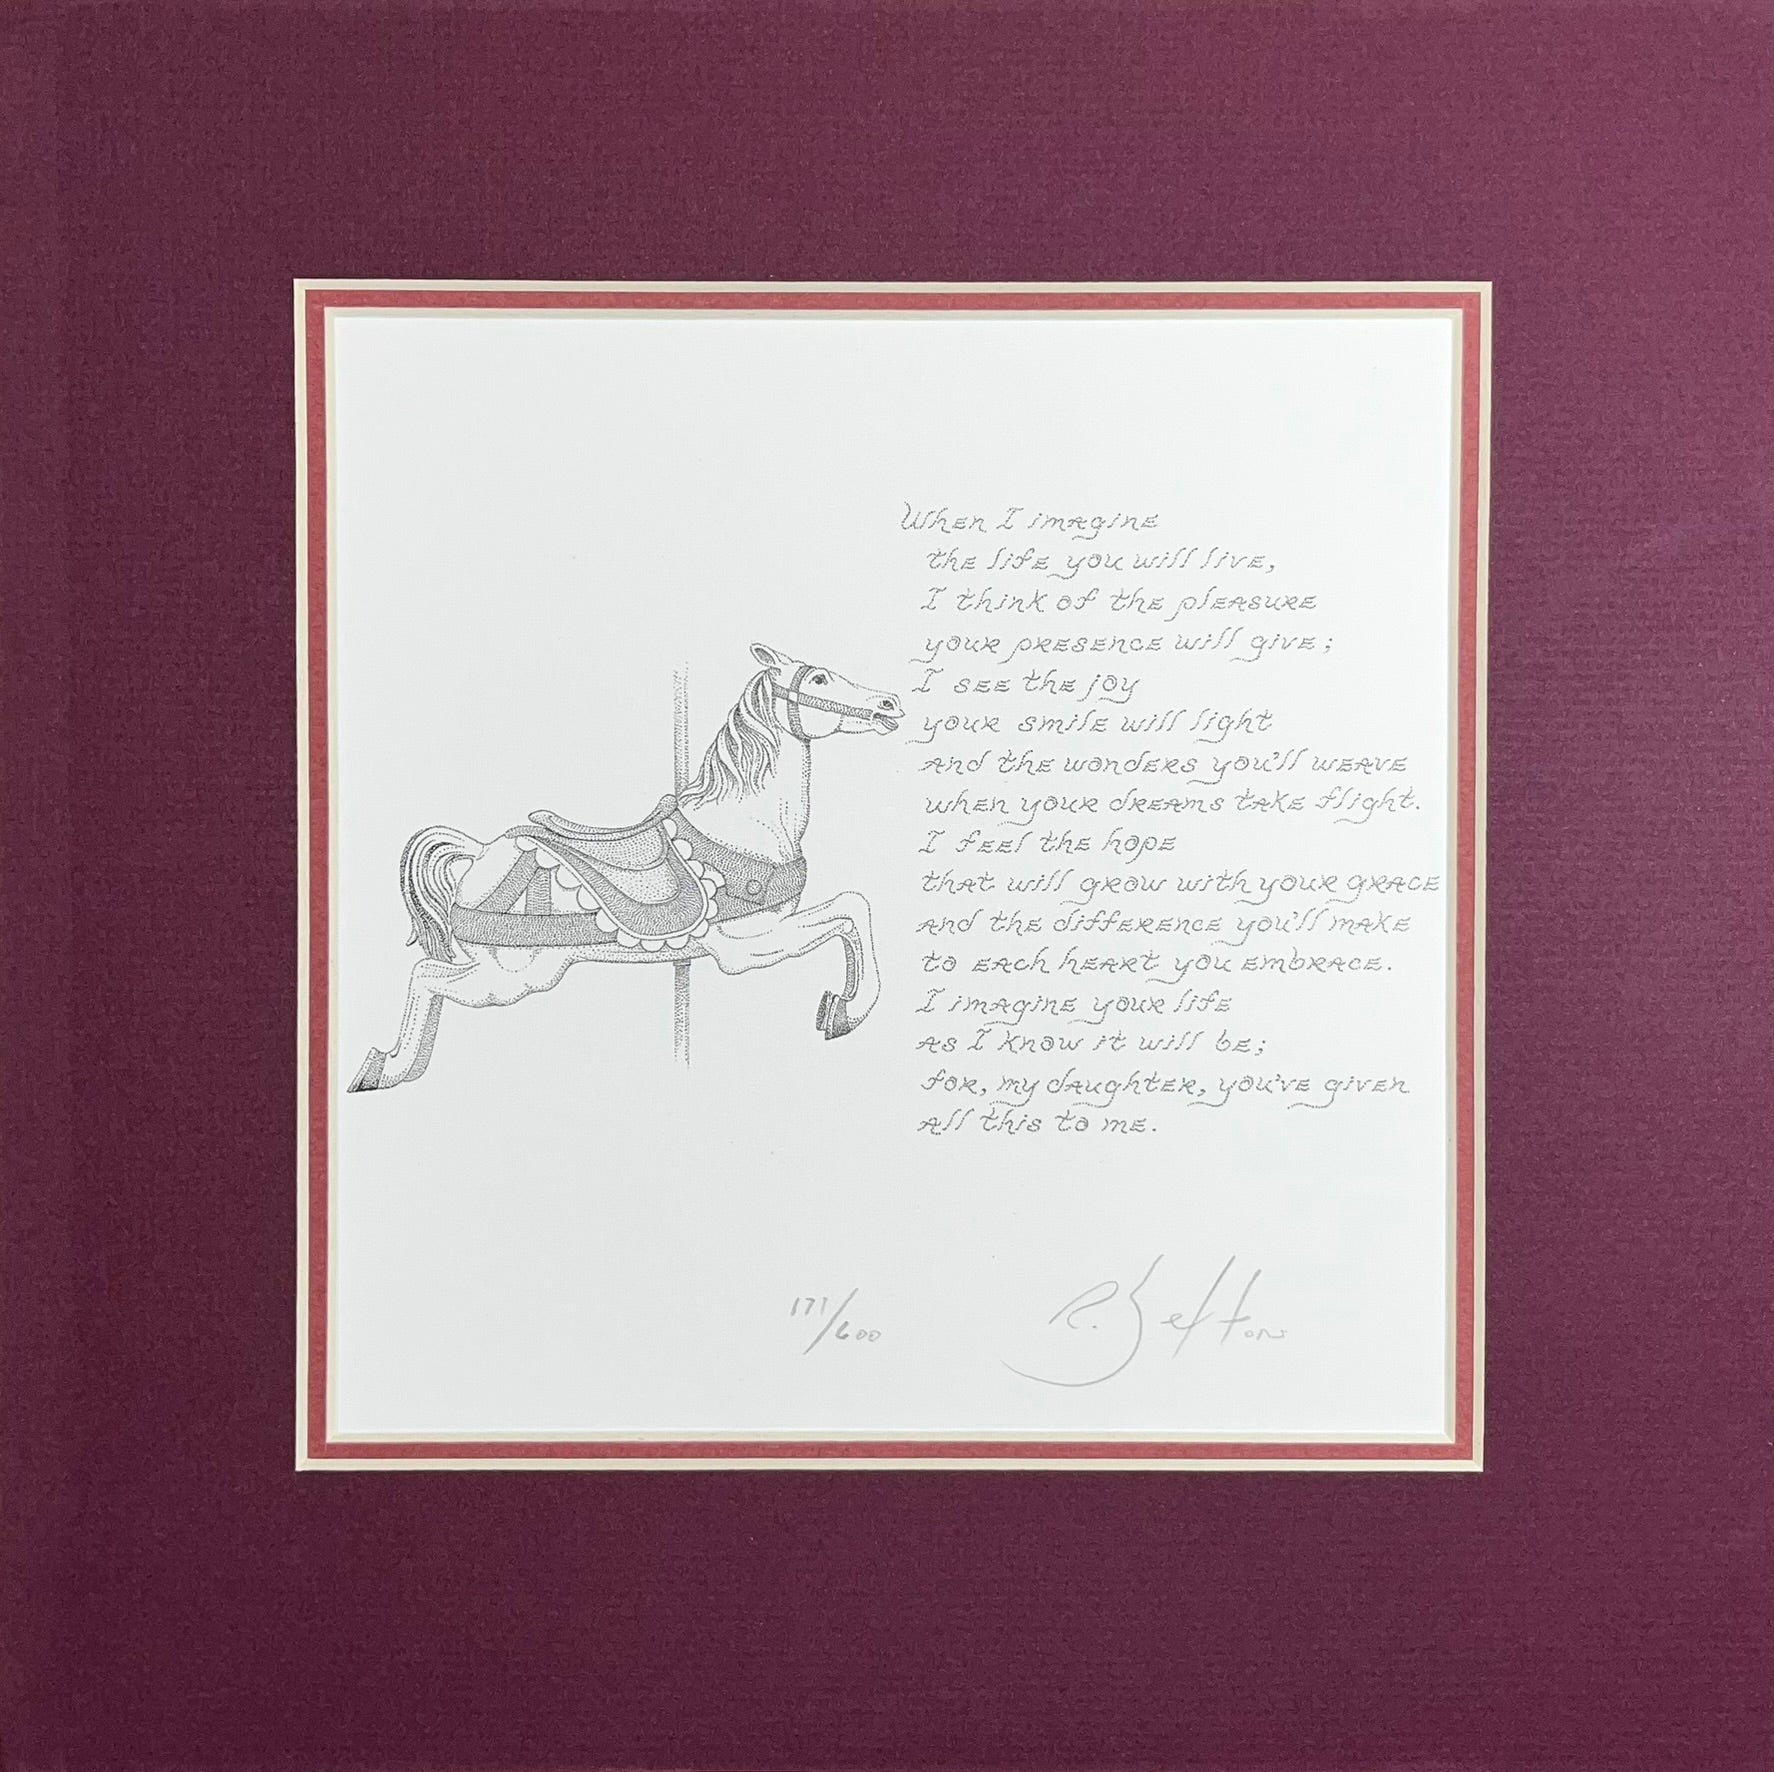 When I imagine
the life you will live,
I think of the pleasure
your presence will give;
I see the joy
your smile will light
and the wonders you'll weave
when your dreams take flight.
I feel the hope
that will grow with your grace
and the difference you'll make
to each heart you embrace.
I imagine your life
as I know it will be;
for, my daughter, you've given
all this to me.
171/600 R. Sexton